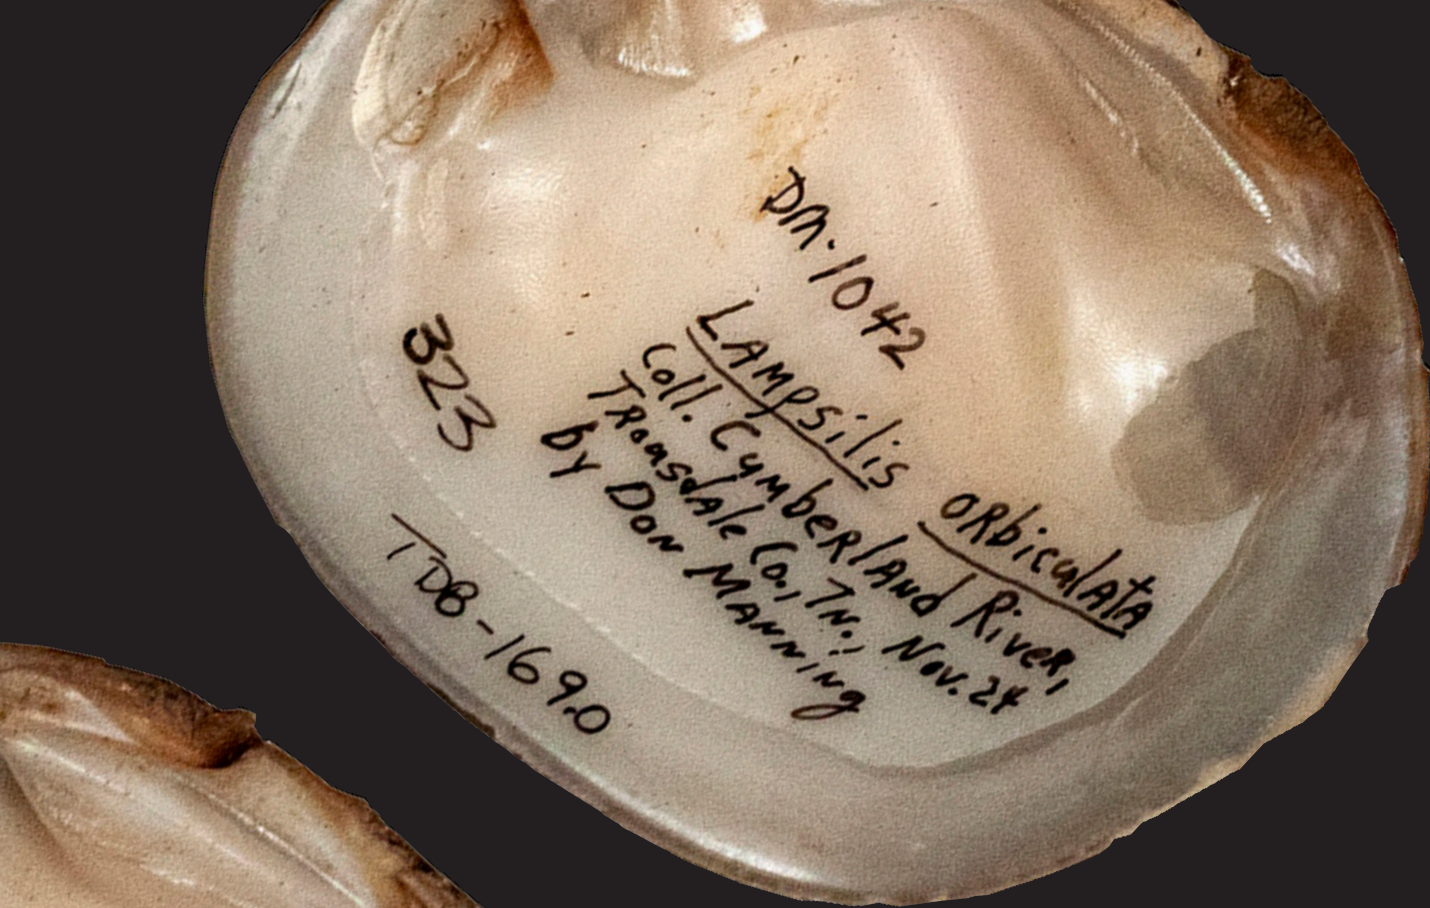 DM·1042
LAMPSILIS ORbiculATA
Coll. CumbeRlAND RiveR,
TRousdAle Co., TN., Nov. 24
by DON MANNiNg
323
TDB-169.0